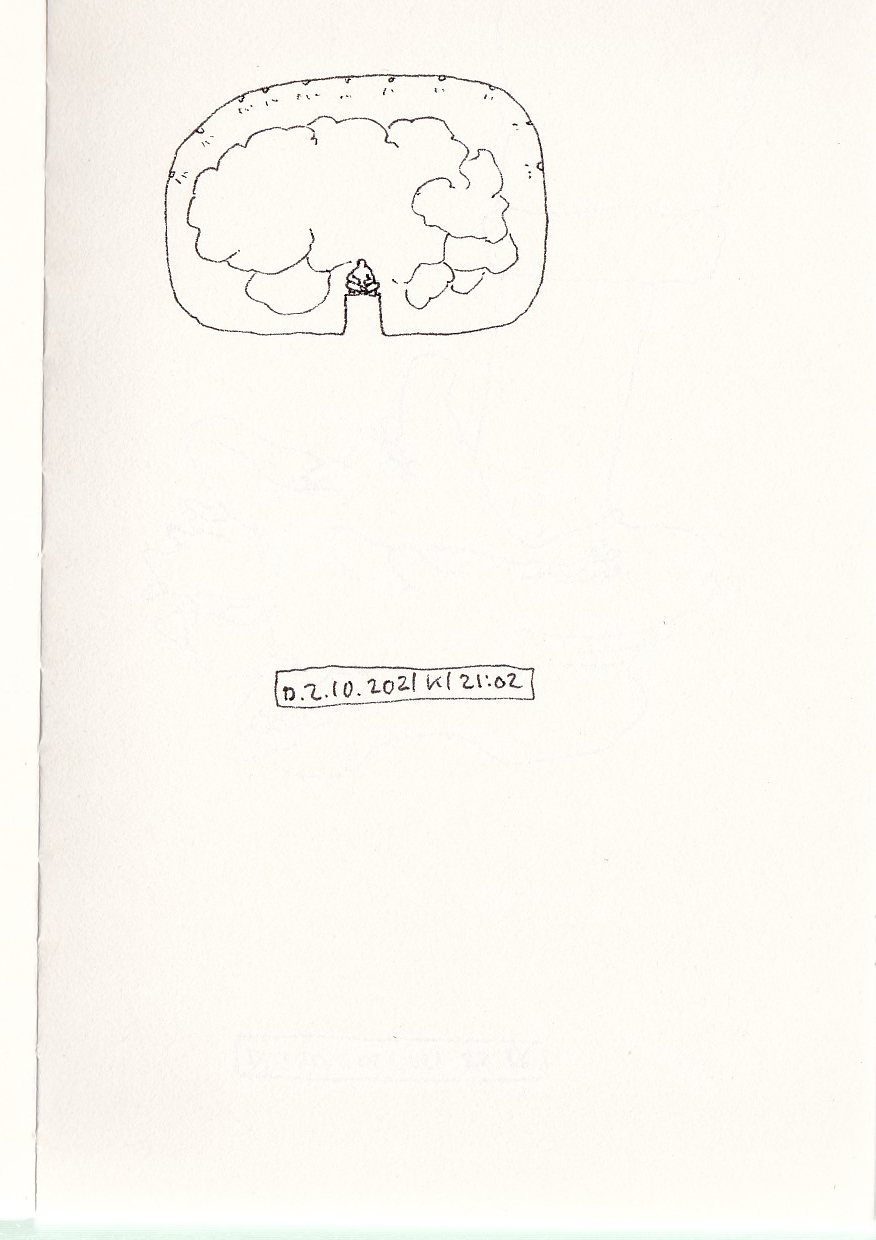 D.2.10.2021 Kl 21:02